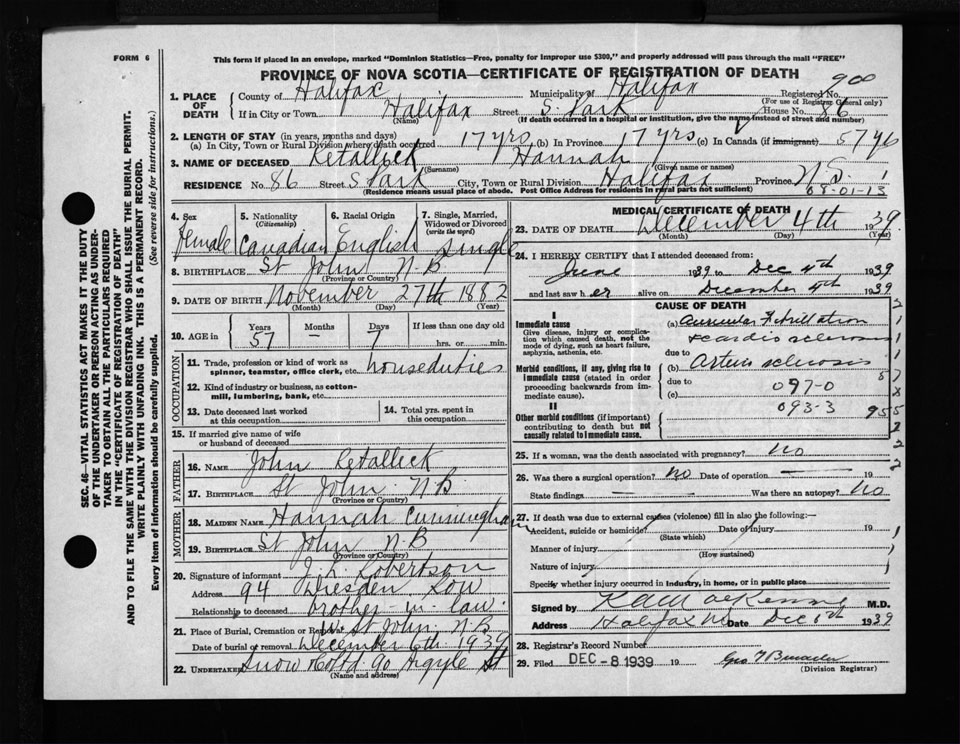 FORM 6
This form if placed in an envelope, marked "Dominion Statistics—Free, penalty for improper use $300," and properly addressed will pass through the mail "FREE"
PROVINCE OF NOVA SCOTIA—CERTIFICATE OF REGISTRATION OF DEATH
1. PLACE OF DEATH County of Halifax Municipality of Halifax Registered No. 900
(For use of Registrar General only)
If in City or Town Halifax Street S. Park House No. 86
(Name) (If death occurred in a hospital or institution, give the name instead of street and number)
2. LENGTH OF STAY (in years, months and days)
(a) In City, Town or Rural Division where death occurred 17 yrs (b) In Province 17 yrs (c) In Canada (if immigrant) 57
3. NAME OF DECEASED Retallick Hannah
(Surname) (Given name or names)
RESIDENCE No. 86 Street S Park City, Town or Rural Division Halifax Province N.S.
(Residence means usual place of abode. Post Office Address for residents in rural parts not sufficient) 68-01-13
4. Sex 5. Nationality (Citizenship) 6. Racial Origin 7. Single, Married, Widowed or Divorced (write the word)
Female Canadian English Single
8. BIRTHPLACE St John N.B
(Province or Country)
9. DATE OF BIRTH November 27th 1882
(Month) (Day) (Year)
10. AGE in Years Months Days If less than one day old
57 — 7 hrs. or min.
OCCUPATION
11. Trade, profession or kind of work as spinner, teamster, office clerk, etc. houseduties
12. Kind of industry or business, as cotton-mill, lumbering, bank, etc.
13. Date deceased last worked at this occupation 14. Total yrs. spent in this occupation
15. If married give name of wife or husband of deceased
FATHER
16. NAME John Retallick
17. BIRTHPLACE St John N.B
(Province or Country)
MOTHER
18. MAIDEN NAME Hannah Cunningham
19. BIRTHPLACE St John N.B
(Province or Country)
20. Signature of informant J. L. Robertson
Address 94 Dresden Row
Relationship to deceased brother-in-law.
21. Place of Burial, Cremation or Removal St John N.B
Date of burial or removal December 6th 1939
22. Undertaker Snow &Co Ltd 90 Argyle St
(Name and address)
MEDICAL CERTIFICATE OF DEATH
23. DATE OF DEATH December 4th 1939
(Month) (Day) (Year)
24. I HEREBY CERTIFY that I attended deceased from:
June 1939 to Dec 4th 1939
and last saw her alive on December 4th 1939
CAUSE OF DEATH
I
Immediate cause (a) auricular Fibrillation
Give disease, injury or complication which caused death, not the mode of dying, such as heart failure, asphyxia, asthenia, etc. & cardiosclerosis
due to
Morbid conditions, if any, giving rise to immediate cause (stated in order proceeding backwards from immediate cause). (b) Arterio sclerosis
due to 097-0
(c)
II
Other morbid conditions (if important) contributing to death but not causally related to immediate cause. 093-3 95
25. If a woman, was the death associated with pregnancy? no
26. Was there a surgical operation? no Date of operation — 19
State findings — — Was there an autopsy? no
27. If death was due to external causes (violence) fill in also the following:—
Accident, suicide or homicide? Date of injury 19
(State which)
Manner of injury
(How sustained)
Nature of injury
Specify whether injury occurred in industry, in home, or in public place
Signed by M.D.
Address Halifax Date Dec 5th 1939
28. Registrar's Record Number
29. Filed DEC -8 1939 19
(Division Registrar)
SEC. 46—VITAL STATISTICS ACT MAKES IT THE DUTY OF THE UNDERTAKER OR PERSON ACTING AS UNDERTAKER TO OBTAIN ALL THE PARTICULARS REQUIRED IN THE "CERTIFICATE OF REGISTRATION OF DEATH" AND TO FILE THE SAME WITH THE DIVISION REGISTRAR WHO SHALL ISSUE THE BURIAL PERMIT.
WRITE PLAINLY WITH UNFADING INK. THIS IS A PERMANENT RECORD.
Every item of information should be carefully supplied. (See reverse side for instructions.)